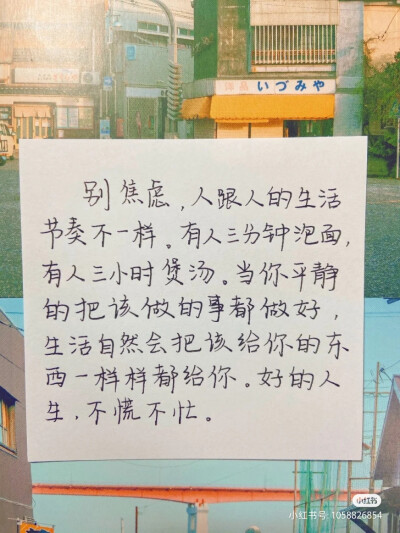 いづみや
别焦虑,人跟人的生活
节奏不一样。有人三分钟泡面,
有人三小时煲汤。当你平静
的把该做的事都做好,
生活自然会把该给你的东
西一样样都给你。好的人
生,不慌不忙。
小红书
小红书号:1058826854